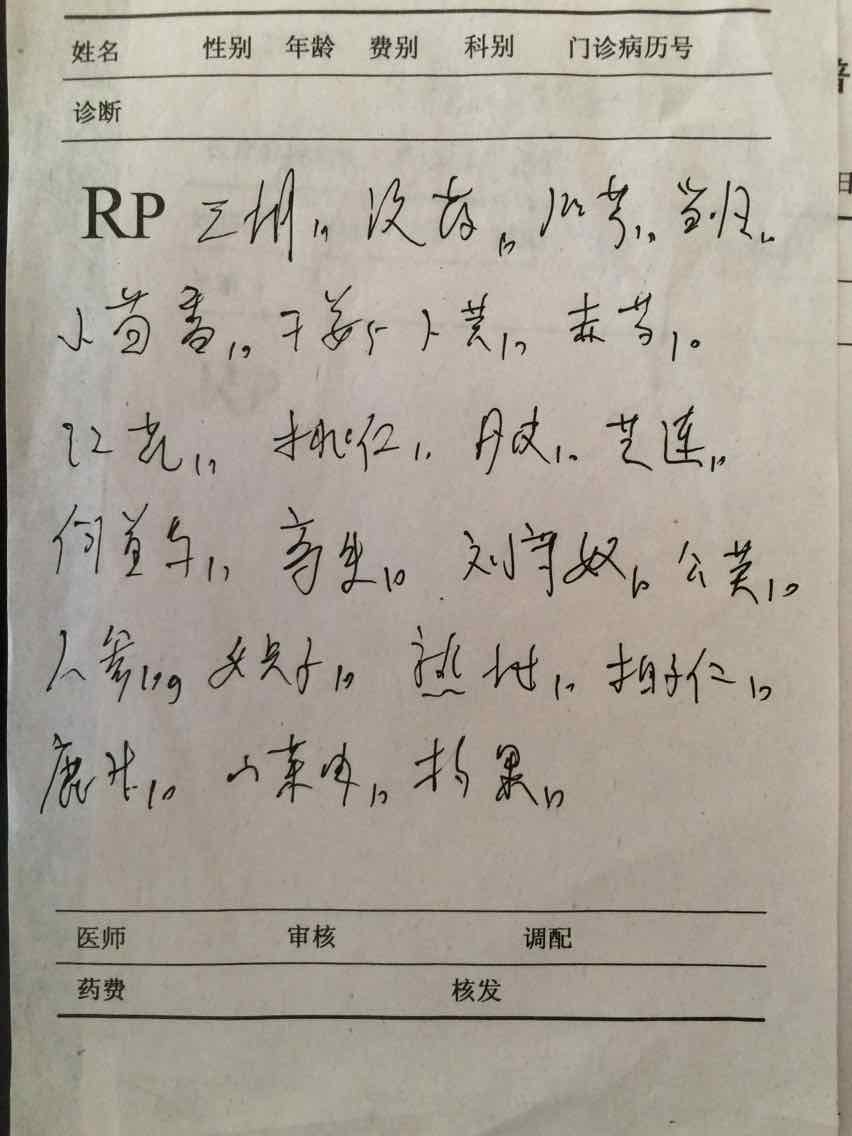 姓名 性别 年龄 费别 科别 门诊病历号
诊断
RP 元胡10 没药10 川芎10 当归10
小茴香10 干姜5 卜黄10 赤芍10
红花10 桃仁10 丹皮10
何首乌10 寄生10 刘寄奴10 公英10
人参10g 女贞子10 熟地10 柏子仁10
10 10 10
医师 审核 调配
药费 核发